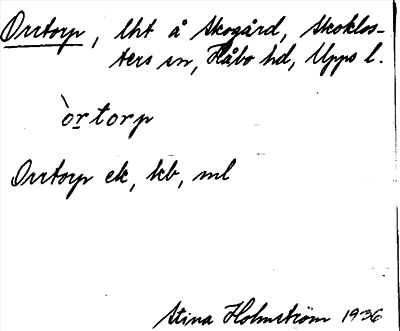 Orrtorp, lht å Skogård, Skoklos-
ters sn, Håbo hd, Upps l.
òr̲torp
Orrtorp ek, kb, ml
Stina Holmström 1936